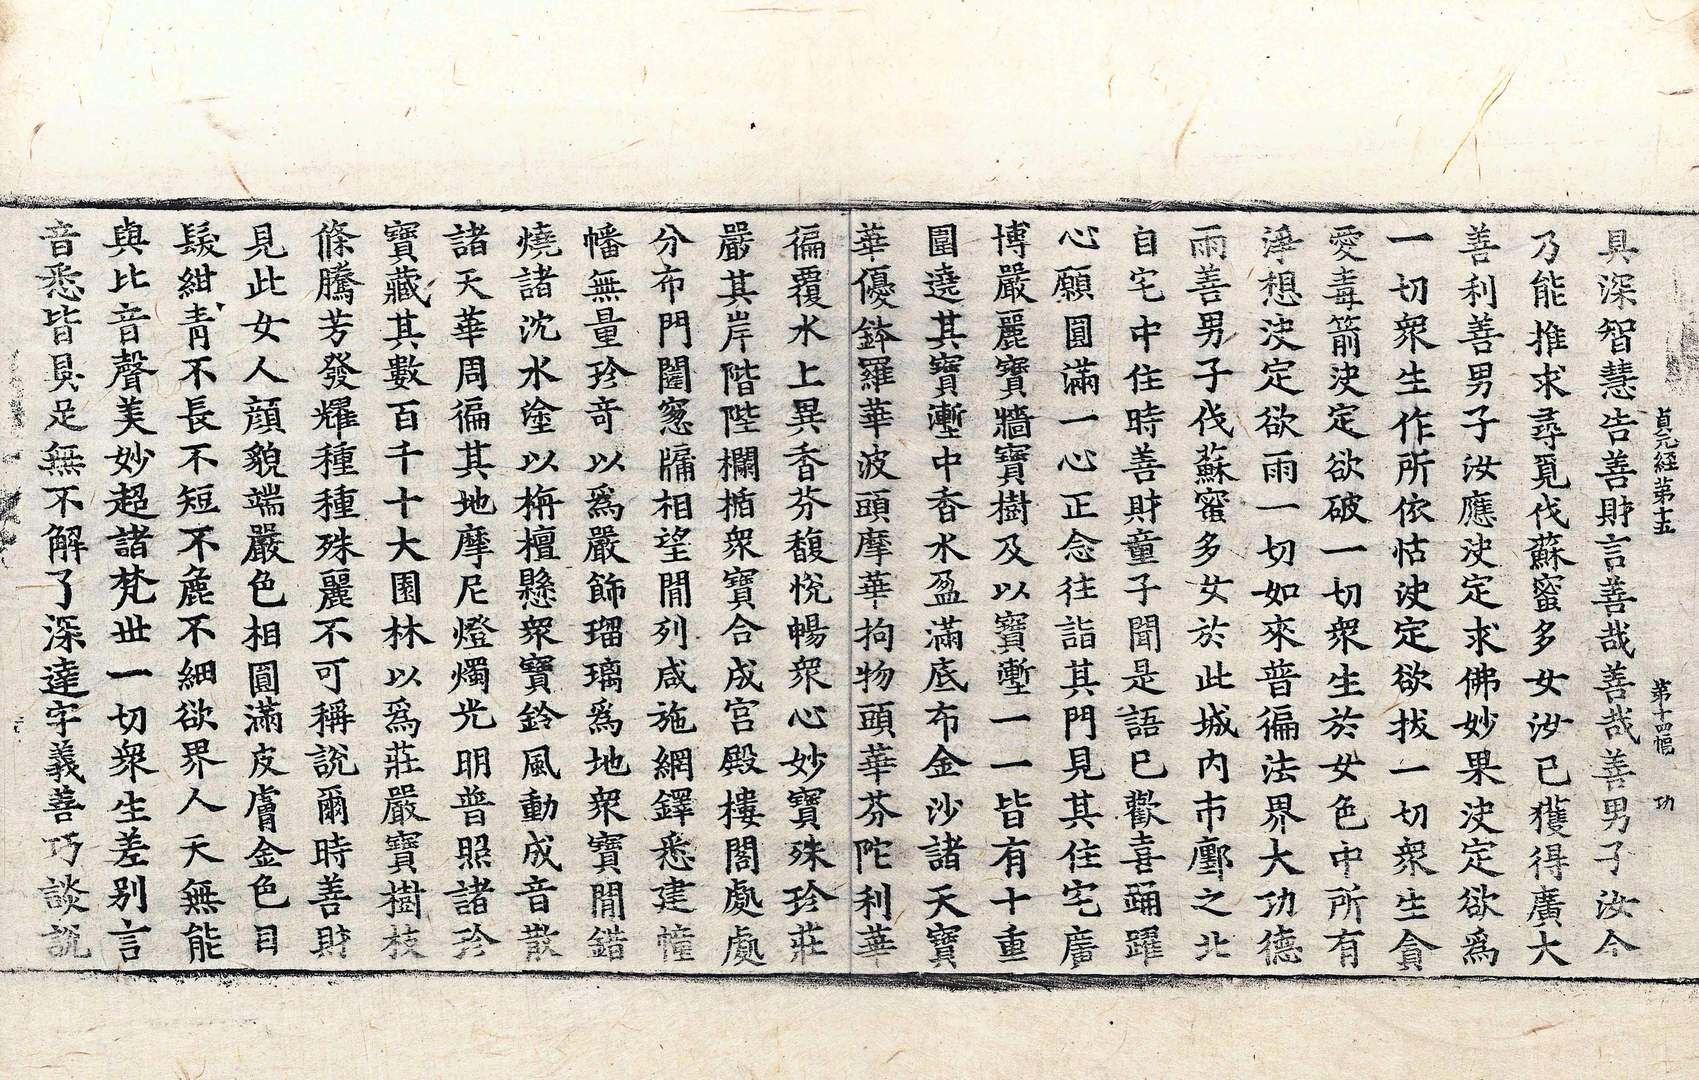 貞元経第十五 第十四幅 功
具深智慧告善財言善哉善哉善男子汝今
乃能推求尋覓伐蘇蜜多女汝已獲得廣大
善利善男子汝應决定求佛妙果决定欲爲
一切衆生作所依怙决定欲拔一切衆生貪
愛毒箭决定欲破一切衆生於女色中所有
淨想决定欲雨一切如來普徧法界大功德
雨善男子伐蘇蜜多女於此城内市鄽之北
自宅中住時善財童子聞是語已歡喜踊躍
心願圓滿一心正念往詣其門見其住宅廣
博嚴麗寶牆寶樹及以寶壍一一皆有十重
圍遶其寶壍中香水盈滿底布金沙諸天寶
華優鉢羅華波頭摩華拘物頭華芬陀利華
徧覆水上異香芬馥悅暢衆心妙寶殊珍莊
嚴其岸階陛欄楯衆寶合成宫殿樓閣處處
分布門闥窓牗相望間列咸施網鐸悉建幢
幡無量珍奇以爲嚴飾瑠璃爲地衆寶間錯
燒諸沈水塗以栴檀懸衆寶鈴風動成音散
諸天華周徧其地摩尼燈燭光明普照諸珍
寶藏其數百千十大園林以爲莊嚴寶樹枝
條騰芳發耀種種殊麗不可稱說爾時善財
見此女人顔貌端嚴色相圓滿皮膚金色目
髮紺青不長不短不麁不細欲界人天無能
與比音聲美妙超諸梵世一切衆生差别言
音悉皆具足無不解了深達字義善巧談說